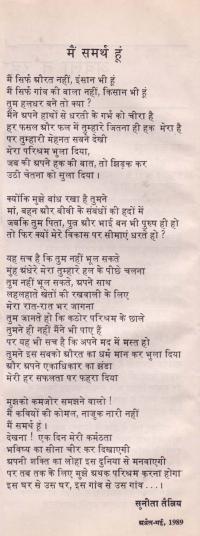 मैं समर्थ हूं
मैं सिर्फ़ औरत नहीं, इंसान भी हूं
मैं सिर्फ़ गांव की बाला नहीं, किसान भी हूं
तुम हलधर बने तो क्या ?
मैंने अपने हाथों से धरती के गर्भ को चीरा है
हर फसल और फल में तुम्हारे जितना ही हक मेरा है
पर तुम्हारी मेहनत सबने देखी
मेरा परिश्रम भुला दिया,
जब की अपने हक की बात, तो झिड़क कर
उठी चेतना को सुला दिया ।
क्योंकि मुझे बांध रखा है तुमने
मां, बहन और बीवी के संबंधों की हदों में
जबकि तुम पिता, पुत्र और भाई बन भी पुरुष ही हो
तो फिर क्यों मेरे विकास पर सीमाएं धरते हो ?
यह सच है कि तुम नहीं भूल सकते
मुंह अंधेरे मेरा तुम्हारे हल के पीछे चलना
तुम नहीं भूल सकते, अपने साथ
लहलहाते खेतों की रखवाली के लिए
मेरा रात-रात भर जागना
तुम जानते हो कि कठोर परिश्रम के छाले
तुमने ही नहीं मैंने भी पाए हैं
पर यह भी सच है कि अपने मद में मस्त हो
तुमने इस सबको औरत का धर्म मान कर भुला दिया
और अपने एकाधिकार का झंडा
मेरी हर सफलता पर फहरा दिया
मुझको कमजोर समझने वालो !
मैं कवियों की कोमल, नाजुक नारी नहीं
मैं समर्थ हूं ।
देखना ! एक दिन मेरी कर्मठता
भविष्य का सीना चीर कर दिखाएगी
अपनी शक्ति का लोहा इस दुनिया से मनवाएगी
पर तब तक के लिए मुझे अथक परिश्रम करना होगा
इस घर से उस घर, इस गांव से उस गांव . . . ।
सुनीता तैलिय
अप्रैल-मई, 1989